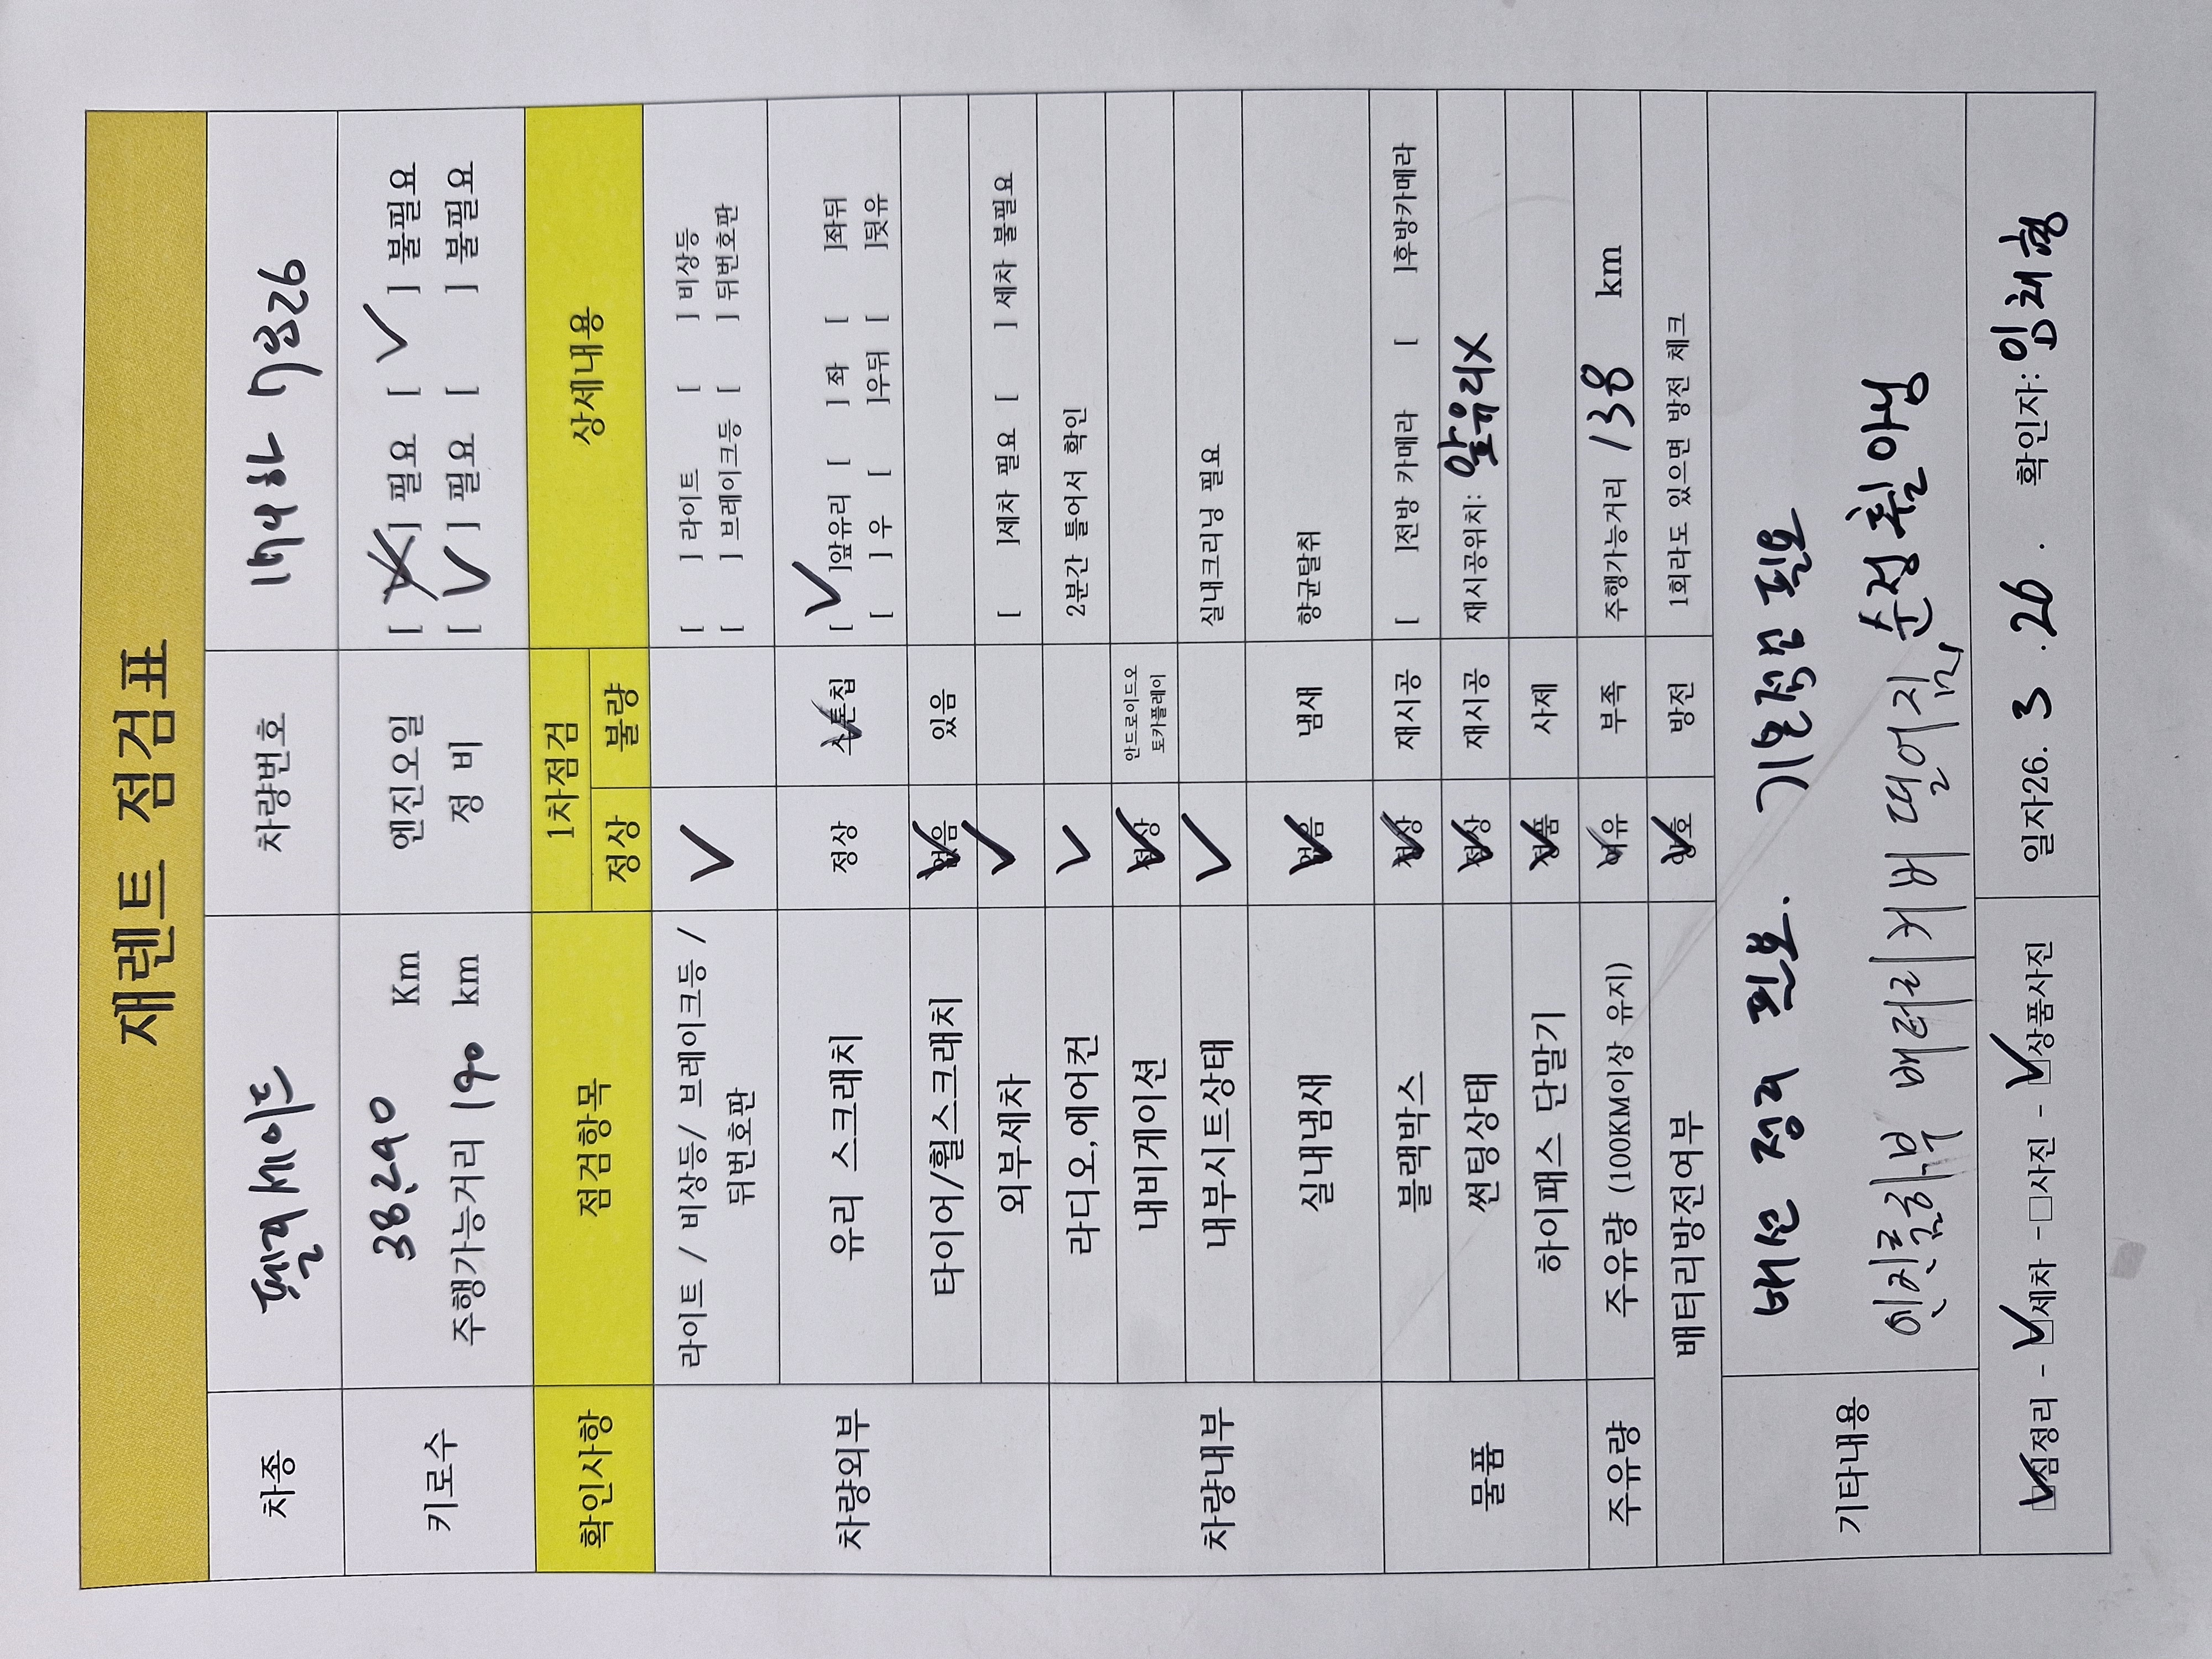 재렌트 점검표
차종 팰리세이드 차량번호 174하 7826
키로수 38,290 Km 엔진오일 [ ] 필요 [ ✓ ] 불필요
주행가능거리 190 km 정 비 [ ✓ ] 필요 [ ] 불필요
확인사항 점검항목 1차점검 상세내용
정상 불량
차량외부 라이트 / 비상등/ 브레이크등 / 뒤번호판 ✓ [ ] 라이트 [ ] 비상등
[ ] 브레이크등 [ ] 뒤번호판
유리 스크래치 정상 스톤칩 ✓ [ ✓ ]앞유리 [ ] 좌 [ ]좌뒤
[ ] 우 [ ]우뒤 [ ]뒷유
타이어/휠스크래치 없음 ✓ 있음
외부세차 ✓ [ ]세차 필요 [ ] 세차 불필요
차량내부 라디오,에어컨 ✓ 2분간 틀어서 확인
내비게이션 정상 ✓ 안드로이드오토카플레이
내부시트상태 ✓ 실내크리닝 필요
실내냄새 없음 ✓ 냄새 향균탈취
물품 블랙박스 정상 ✓ 재시공 [ ]전방 카메라 [ ]후방카메라
썬팅상태 정상 ✓ 재시공 재시공위치: 앞유리X
하이패스 단말기 정품 ✓ 사제
주유량 주유량 (100KM이상 유지) 여유 ✓ 부족 주행가능거리 138 km
배터리방전여부 양호 ✓ 방전 1회라도 있으면 방전 체크
기타내용 배선 정리 필요. 기본점검 필요
엔진룸하부 배터리커버 떨어짐, 순정휠아님
☑짐정리 - ☑세차 -□사진 - ☑상품사진 일자26. 3 .26 . 확인자: 임채형